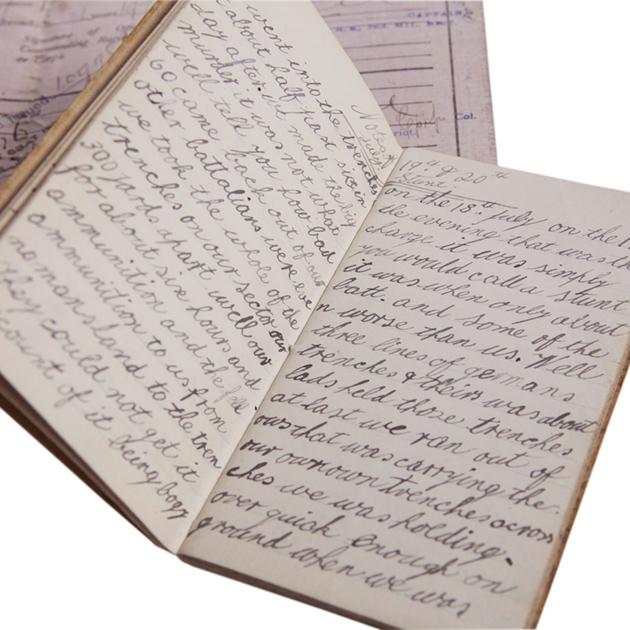 CAPTAIN,
Col.
Notes of 19th & 20th
July Stunt
went into the trenches on the 18th July on the
about half past six in the evening that was the
day after we made the big charge it was simply
murder it was not what you would call a stunt
well tell you how bad it was when only about
60 came back out of our batt. and some of the
other battalians were even worse than us. Well
we took the whole of the three lines of germans
trenches on our sector our trenches & theirs was about
300 yard apart well our lads held those trenches
for about six hours and at last we ran out of
ammunition and the fellows that was carrying the
ammunition to us from our own own trenches across
no mans land to the trenches we was holding.
they could not get it over quick enough on
count of it being boggy ground when we was